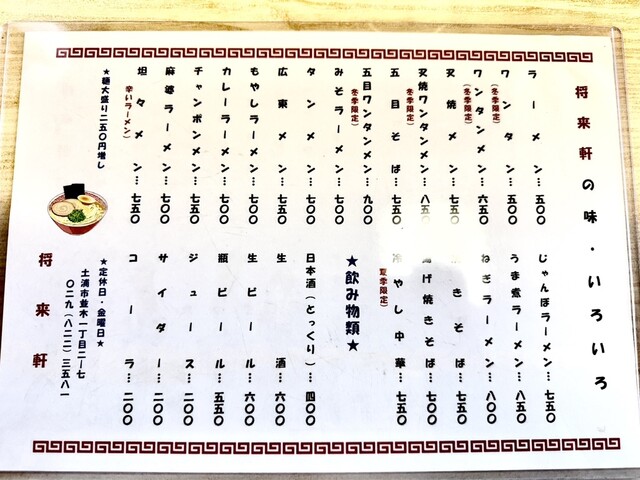 将来軒の味・いろいろ
ラーメン…五〇〇
ワンタン…五〇〇
(冬季限定)
ワンタンメン…六五〇
(冬季限定)
叉焼メン…七五〇
叉焼ワンタンメン…八五〇
(冬季限定)
五目そば…七五〇
五目ワンタンメン…九〇〇
(冬季限定)
みそラーメン…七〇〇
タンメン…七〇〇
広東メン…七五〇
もやしラーメン…七〇〇
カレーラーメン…七〇〇
チャンポンメン…七五〇
麻婆ラーメン…七五〇
坦々メン…七五〇
(辛いラーメン)
★麺大盛り二五〇円増し
じゃんぼラーメン…七五〇
うま煮ラーメン…八五〇
ねぎラーメン…八〇〇
きそば…七五〇
げ焼きそば…七〇〇
冷やし中華…七五〇
(夏季限定)
★飲み物類★
日本酒(とっくり)…四〇〇
生酒…六〇〇
生ビール…六〇〇
瓶ビール…五五〇
ジュース…二〇〇
サイダー…二〇〇
コーラ…二〇〇
★定休日・金曜日★
土浦市並木一丁目二ー七
〇二九(八二二)三五八一
将来軒